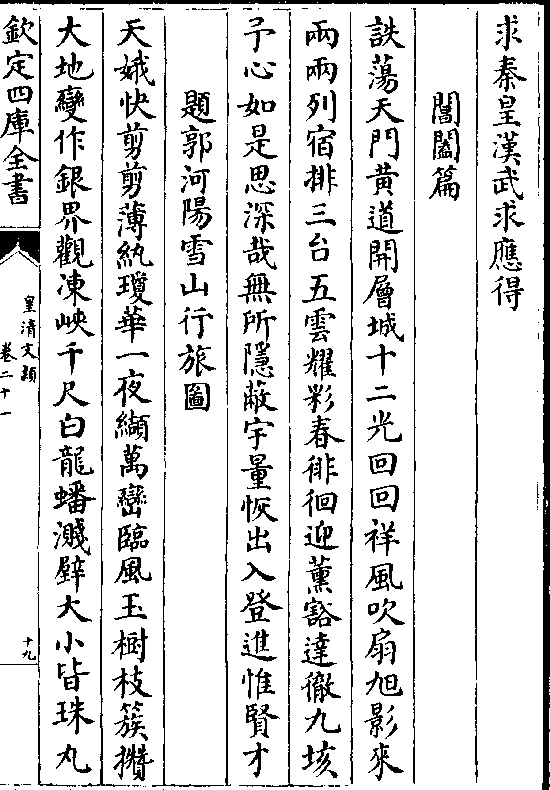 求秦皇漢武求應得
閶闔篇
詄蕩天門黃道開層城十二光回回祥風吹扇旭影來
兩兩列宿排三台五雲耀彩春徘徊迎薰豁達徹九垓
予心如是思深哉無所隱蔽宇量恢出入登進惟賢才
題郭河陽雪山行旅圖
天娥快剪剪薄紈瓊華一夜纈萬巒臨風玉樹枝簇攢
大地變作銀界觀凍峽千尺白龍蟠濺壁大小皆珠丸
欽定四庫全書
皇清文穎
卷二十一
十九